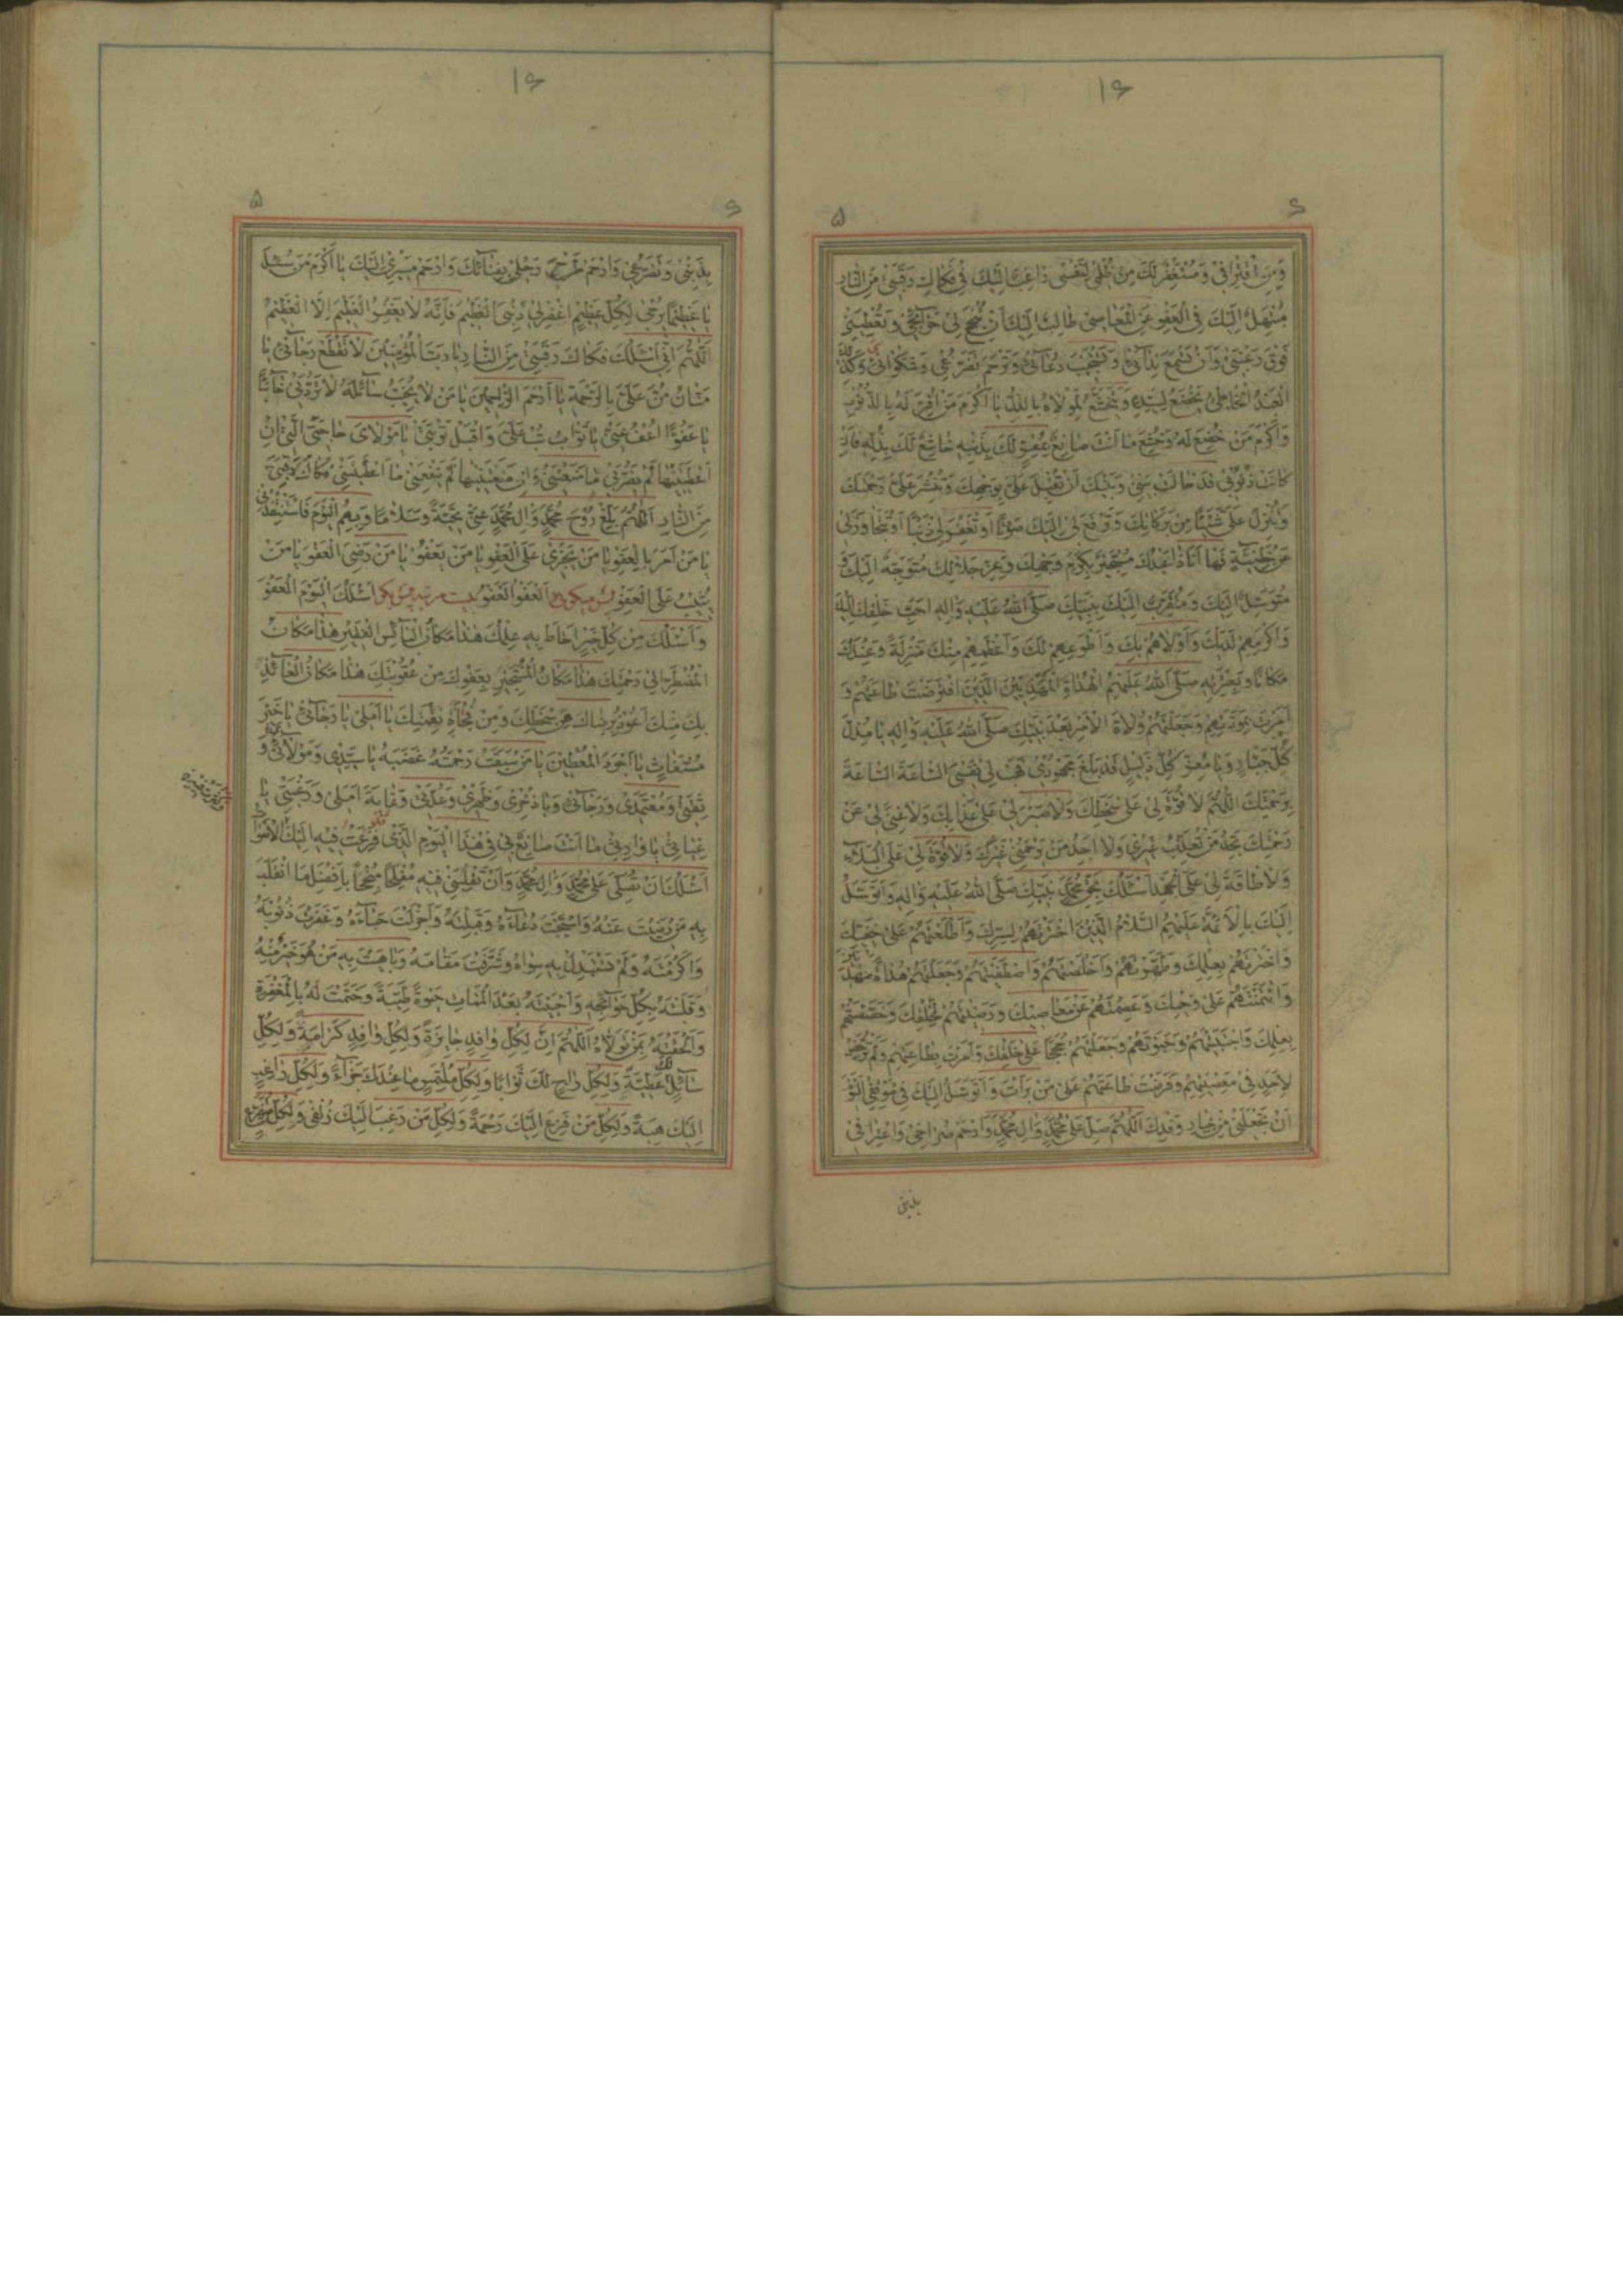 ۱۶
۶
۵
وَمِنِ افْتِرائي وَمُسْتَغْفِرٌ لَكَ مِنْ ظُلْمي لِنَفْسي راغِبٌ اِلَيْكَ في فَكاكِ رَقَبَتي مِنَ النّارِ
مُبْتَهِلٌ اِلَيْكَ فِي الْعَفْوِ عَنِ الْمَعاصي طالِبٌ اِلَيْكَ اَنْ تُنْجِحَ لي حَوآئِجي وَتُعْطِيَني
فَوْقَ رَغْبَتي وَاَنْ تَسْمَعَ نِدآئي وَتَسْتَجيبَ دُعآئي وَتَرْحَمَ تَضَرُّعي وَشَكْوائي وَكَذلِكَ
الْعَبْدُ الْخاطِئُ يَخْضَعُ لِسَيِّدِهِ وَيَتَخَشَّعُ لِمَوْلاهُ بِالذُّلِّ يا اَكْرَمَ مَنْ اُقِرَّ لَهُ بِالذُّنُوبِ
وَاَكْرَمَ مَنْ خُضِعَ لَهُ وَخُشِعَ ما اَنْتَ صانِعٌ بِمُقِرٍّ لَكَ بِذَنْبِهِ خاشِعٍ لَكَ بِذُلِّهِ فَاِنْ
كانَتْ ذُنُوبي قَدْ حالَتْ بَيْني وَبَيْنَكَ اَنْ تُقْبِلَ عَلَيَّ بِوَجْهِكَ وَتَنْشُرَ عَلَيَّ رَحْمَتَكَ
وَتُنْزِلَ عَلَيَّ شَيْئًا مِنْ بَرَكاتِكَ وَتَرْفَعَ لي اِلَيْكَ صَوْتًا اَوْ تَغْفِرَ لي ذَنْبًا اَوْ تَتَجاوَزَ لي
عَنْ خَطيئَةٍ فَها اَنَا ذا عَبْدُكَ مُسْتَجيرٌ بِكَرَمِ وَجْهِكَ وَعِزِّ جَلالِكَ مُتَوَجِّهٌ اِلَيْكَ وَ
مُتَوَسِّلٌ اِلَيْكَ وَمُتَقَرِّبٌ اِلَيْكَ بِنَبِيِّكَ صَلَّى اللهُ عَلَيْهِ وَالِهِ اَحَبِّ خَلْقِكَ اِلَيْكَ
وَاَكْرَمِهِمْ لَدَيْكَ وَاَوْلاهُمْ بِكَ وَاَطْوَعِهِمْ لَكَ وَاَعْظَمِهِمْ مِنْكَ مَنْزِلَةً وَعِنْدَكَ
مَكانًا وَبِعِتْرَتِهِ صَلَّى اللهُ عَلَيْهِمُ الْهُداةِ الْمَهْدِيّينَ الَّذينَ افْتَرَضْتَ طاعَتَهُمْ وَ
اَمَرْتَ بِمَوَدَّتِهِمْ وَجَعَلْتَهُمْ وُلاةَ الْاَمْرِ بَعْدَ نَبِيِّكَ صَلَّى اللهُ عَلَيْهِ وَالِهِ يا مُذِلَّ
كُلِّ جَبّارٍ وَيا مُعِزَّ كُلِّ ذَليلٍ قَدْ بَلَغَ مَجْهُودي فَهَبْ لي نَفْسي السّاعَةَ السّاعَةَ
بِرَحْمَتِكَ اَللّهُمَّ لا قُوَّةَ لي عَلى سَخَطِكَ وَلا صَبْرَ لي عَلى عَذابِكَ وَلا غِنى لي عَنْ
رَحْمَتِكَ تَجِدُ مَنْ تُعَذِّبُ غَيْري وَلا اَجِدُ مَنْ يَرْحَمُني غَيْرَكَ وَلا قُوَّةَ لي عَلَى الْبَلآءِ
وَلا طاقَةَ لي عَلَى الْجَهْدِ اَسْئَلُكَ بِحَقِّ مُحَمَّدٍ نَبِيِّكَ صَلَّى اللهُ عَلَيْهِ وَالِهِ وَاَتَوَسَّلُ
اِلَيْكَ بِالْاَئِمَّةِ عَلَيْهِمُ السَّلامُ الَّذينَ اخْتَرْتَهُمْ لِسِرِّكَ وَاَطْلَعْتَهُمْ عَلى خَفِيِّكَ
وَاخْتَرْتَهُمْ بِعِلْمِكَ وَطَهَّرْتَهُمْ وَاَخْلَصْتَهُمْ وَاصْطَفَيْتَهُمْ وَجَعَلْتَهُمْ هُداةً مَهْدِيّينَ
وَائْتَمَنْتَهُمْ عَلى وَحْيِكَ وَعَصَمْتَهُمْ عَنْ مَعاصيكَ وَرَضيتَهُمْ لِخَلْقِكَ وَخَصَصْتَهُمْ
بِعِلْمِكَ وَاجْتَبَيْتَهُمْ وَحَبَوْتَهُمْ وَجَعَلْتَهُمْ حُجَجًا عَلى خَلْقِكَ وَاَمَرْتَ بِطاعَتِهِمْ وَلَمْ تُرَخِّصْ
لِاَحَدٍ في مَعْصِيَتِهِمْ وَفَرَضْتَ طاعَتَهُمْ عَلى مَنْ بَرَاْتَ وَاَتَوَسَّلُ اِلَيْكَ في مَوْقِفِي الْيَوْمَ
اَنْ تَجْعَلَني مِنْ خِيارِ وَفْدِكَ اَللّهُمَّ صَلِّ عَلى مُحَمَّدٍ وَالِ مُحَمَّدٍ وَارْحَمْ صُراخي وَاعْتِرافي
بذنبی
۱۶
۶
۵
بِذَنْبي وَتَضَرُّعي وَارْحَمْ طَرْحي رَحْلي بِفِنآئِكَ وَارْحَمْ مَسيري اِلَيْكَ يا اَكْرَمَ مَنْ سُئِلَ
يا عَظيمًا يُرْجى لِكُلِّ عَظيمٍ اغْفِرْ لي ذَنْبِيَ الْعَظيمَ فَاِنَّهُ لا يَغْفِرُ الْعَظيمَ اِلَّا الْعَظيمُ
اَللّهُمَّ اِنّي اَسْئَلُكَ فَكاكَ رَقَبَتي مِنَ النّارِ يا رَبَّ الْمُؤْمِنينَ لا تَقْطَعْ رَجآئي يا
مَنّانُ مُنَّ عَلَيَّ بِالرَّحْمَةِ يا اَرْحَمَ الرّاحِمينَ يا مَنْ لا يُخَيِّبُ سآئِلَهُ لا تَرُدَّني خآئِبًا
يا عَفُوُّ اعْفُ عَنّي يا تَوّابُ تُبْ عَلَيَّ وَاقْبَلْ تَوْبَتي يا مَوْلايَ حاجَتِيَ الَّتي اِنْ
اَعْطَيْتَنيها لَمْ يَضُرَّني ما مَنَعْتَني وَاِنْ مَنَعْتَنيها لَمْ يَنْفَعْني ما اَعْطَيْتَني فَكاكُ رَقَبَتي
مِنَ النّارِ اَللّهُمَّ بَلِّغْ رُوحَ مُحَمَّدٍ وَالِ مُحَمَّدٍ عَنّي تَحِيَّةً وَسَلامًا وَبِهِمُ الْيَوْمَ فَاسْتَنْقِذْني
يا مَنْ اَمَرَ بِالْعَفْوِ يا مَنْ يَجْزي عَلَى الْعَفْوِ يا مَنْ يَعْفُو يا مَنْ رَضِيَ الْعَفْوَ يا مَنْ
يُثيبُ عَلَى الْعَفْوِ پس میکوید الْعَفْوَ الْعَفْوَ بیست مرتبه پس بکو اَسْئَلُكَ الْيَوْمَ الْعَفْوَ
وَاَسْئَلُكَ مِنْ كُلِّ خَيْرٍ اَحاطَ بِهِ عِلْمُكَ هذا مَكانُ الْبآئِسِ الْفَقيرِ هذا مَكانُ
الْمُضْطَرِّ اِلى رَحْمَتِكَ هذا مَكانُ الْمُسْتَجيرِ بِعَفْوِكَ مِنْ عُقُوبَتِكَ هذا مَكانُ الْعآئِذِ
بِكَ مِنْكَ اَعُوذُ بِرِضاكَ مِنْ سَخَطِكَ وَمِنْ فُجْاَةِ نِقْمَتِكَ يا اَمَلي يا رَجآئي يا خَيْرَ
مُسْتَغاثٍ يا اَجْوَدَ الْمُعْطينَ يا مَنْ سَبَقَتْ رَحْمَتُهُ غَضَبَهُ يا سَيِّدي وَمَوْلائي وَ
ثِقَتي وَمُعْتَمَدي وَرَجآئي وَيا ذُخْري وَظَهْري وَعُدَّتي وَغايَةَ اَمَلي وَرَغْبَتي يا
غِياثي يا وارِثي ما اَنْتَ صانِعٌ بي في هذَا الْيَوْمِ الَّذي فَزِعَتْ فيهِ اِلَيْكَ الْاَصْواتُ
اَسْئَلُكَ اَنْ تُصَلِّيَ عَلى مُحَمَّدٍ وَالِ مُحَمَّدٍ وَاَنْ تَقْلِبَني فيهِ مُفْلِحًا مُنْجِحًا بِاَفْضَلِ مَا انْقَلَبَ
بِهِ مَنْ رَضيتَ عَنْهُ وَاسْتَجَبْتَ دُعآءَهُ وَقَبِلْتَهُ وَاَجْزَلْتَ حِبآءَهُ وَغَفَرْتَ ذُنُوبَهُ
وَاَكْرَمْتَهُ وَلَمْ تَسْتَبْدِلْ بِهِ سِواهُ وَشَرَّفْتَ مَقامَهُ وَباهَيْتَ بِهِ مَنْ هُوَ خَيْرٌ مِنْهُ
وَقَلَبْتَهُ بِكُلِّ حَوآئِجِهِ وَاَحْيَيْتَهُ بَعْدَ الْمَماتِ حَيوةً طَيِّبَةً وَخَتَمْتَ لَهُ بِالْمَغْفِرَةِ
وَاَلْحَقْتَهُ بِمَنْ تَوَلّاهُ اَللّهُمَّ اِنَّ لِكُلِّ وافِدٍ جائِزَةً وَلِكُلِّ وافِدٍ كَرامَةً وَلِكُلِّ
سآئِلٍ لَكَ عَطِيَّةً وَلِكُلِّ راجٍ لَكَ ثَوابًا وَلِكُلِّ مُلْتَمِسٍ ما عِنْدَكَ جَزآءً وَلِكُلِّ راغِبٍ
اِلَيْكَ هِبَةً وَلِكُلِّ مَنْ فَزِعَ اِلَيْكَ رَحْمَةً وَلِكُلِّ مَنْ رَغِبَ اِلَيْكَ زُلْفى وَلِكُلِّ مُتَضَرِّعٍ